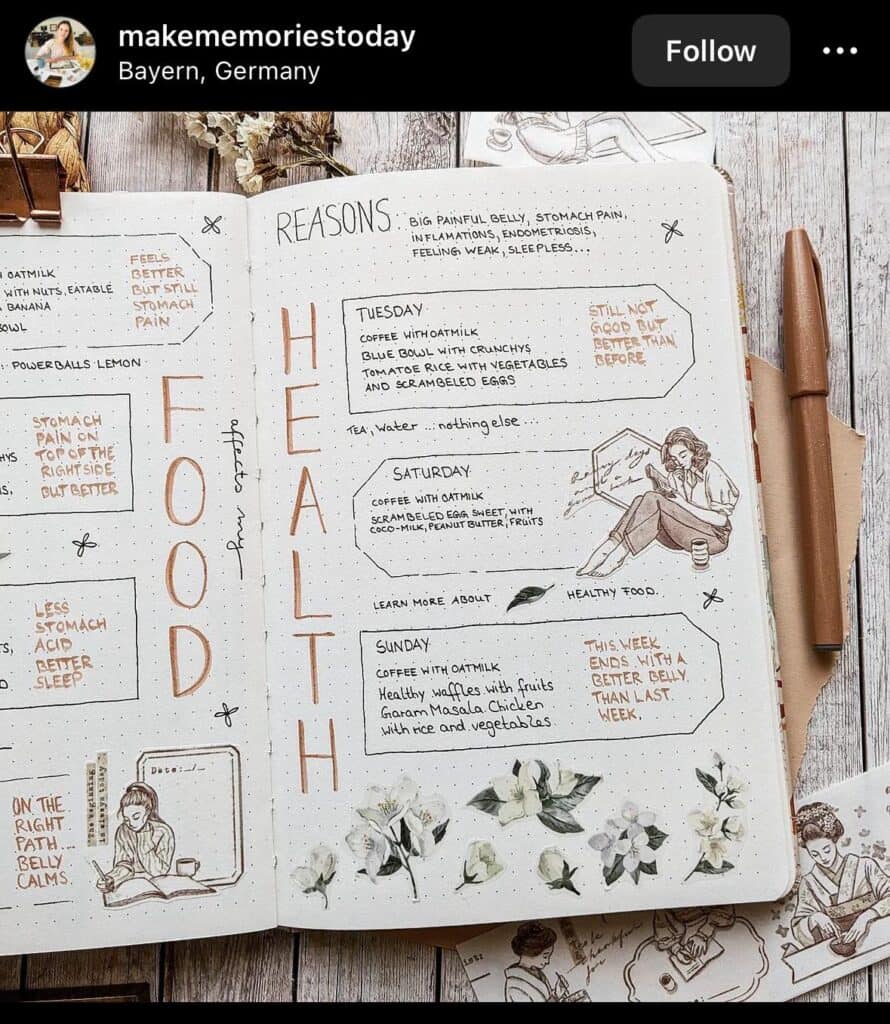 makememoriestoday
Bayern, Germany
Follow
OATMILK
WITH NUTS, EATABLE
BANANA
BOWL
FEELS
BETTER
BUT STILL
STOMACH
PAIN
POWERBALLS LEMON
STOMACH
PAIN ON
TOP OF THE
RIGHT SIDE
BUT BETTER
LESS
STOMACH
ACID
BETTER
SLEEP
ON THE
RIGHT
PATH...
BELLY
CALMS.
FOOD
affects my
Date:
REASONS: BIG PAINFUL BELLY, STOMACH PAIN,
INFLAMATIONS, ENDOMETRIOSIS,
FEELING WEAK, SLEEPLESS...
HEALTH
TUESDAY
COFFEE WITH OATMILK
BLUE BOWL WITH CRUNCHYS
TOMATOE RICE WITH VEGETABLES
AND SCRAMBELED EGGS
STILL NOT
GOOD BUT
BETTER THAN
BEFORE
TEA, Water ... nothing else ...
SATURDAY
COFFEE WITH OATMILK
SCRAMBELED EGG SWEET, WITH
COCO-MILK, PEANUT BUTTER, FRUITS
LEARN MORE ABOUT HEALTHY FOOD.
SUNDAY
COFFEE WITH OATMILK
Healthy waffles with fruits
Garam Masala Chicken
with rice and vegetables
THIS WEEK
ENDS WITH A
BETTER BELLY
THAN LAST
WEEK.